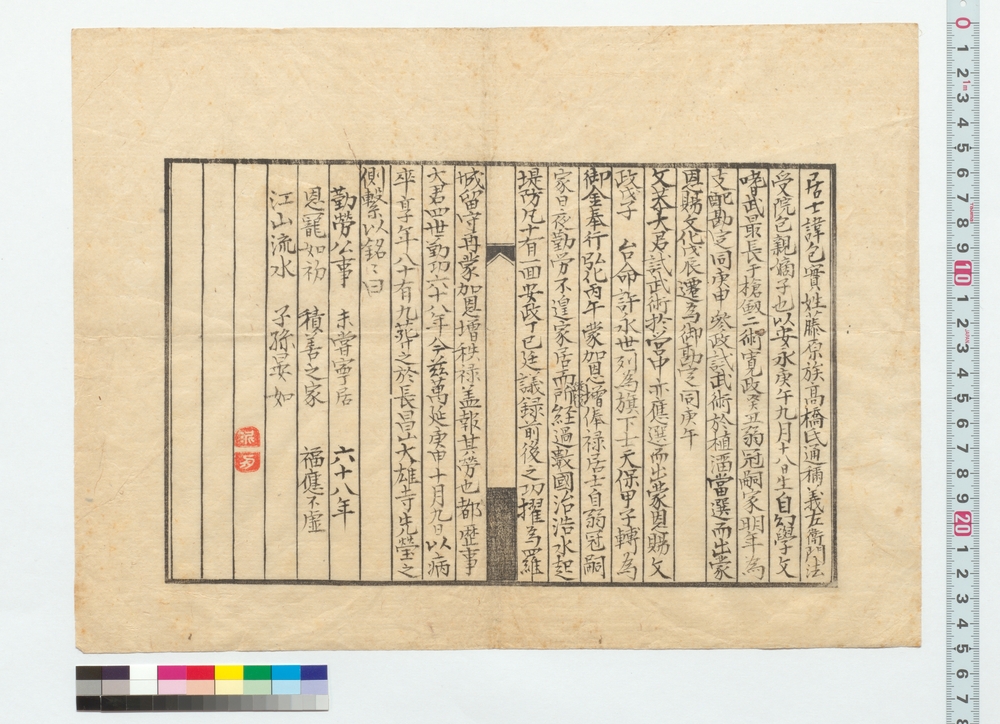 居士諱包實姓藤原族髙橋氏通稱義左衛門法
受院包親嫡子也以安永庚午九月十八日生自幼學文
嗜武最長于槍釼二術寛政癸丑弱冠嗣家明年為
支配勘定同庚申參政試武術於植溜當選而出蒙
恩賜文化戊辰遷為御勘定同庚午
文恭大君試武術於営中亦應選而出蒙恩賜文
政戊子 台命許永世列為旗下士天保甲子轉為
御金奉行弘化丙午蒙加恩増俸禄居士自弱冠嗣
家日夜勤労不遑家居而所経過數國治浩水起
堤防凡十有一面安政丁巳廷議録前後之功擢為羅
城留守再蒙加恩増秩禄盖報其勞也都歴事
大君四世勤功六十八年今茲萬延庚申十月九日以病
卒享年八十有九葬之於長昌山大雄寺先塋之
側繫以銘〻曰
勤勞公事 未嘗寧居 六十八年
恩寵如初 積善之家 福應不虚
江山流水 子孫晏如